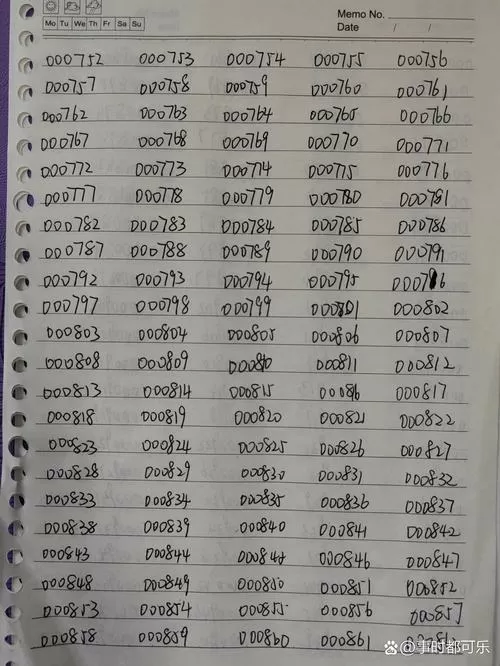 Memo No.
Mo Tu We Th Fr Sa Su
Date / /
000752 000753 000754 000755 000756
000757 000758 000759 000760 000761
000762 000763 000764 000765 000766
000767 000768 000769 000770 000771
000772 000773 000774 000775 000776
000777 000778 000779 000780 000781
000782 000783 000784 000785 000786
000787 000788 000789 000790 000791
000792 000793 000794 000795
000797 000798 000799 000801 000802
000803 000804 000805 000806 000807
000808 000809 000810 000811 000812
000813 000814 000815 000816 000817
000818 000819 000820 000821 000822
000823 000824 000825 000826 000827
000828 000829 000830 000831 000832
000833 000834 000835 000836 000837
000838 000839 000840 000841 000842
000843 000844 000846 000847
000848 000849 000850 000851 000852
000853 000854 000855 000856 000857
000858 000859 000860 000861
@事时都可乐